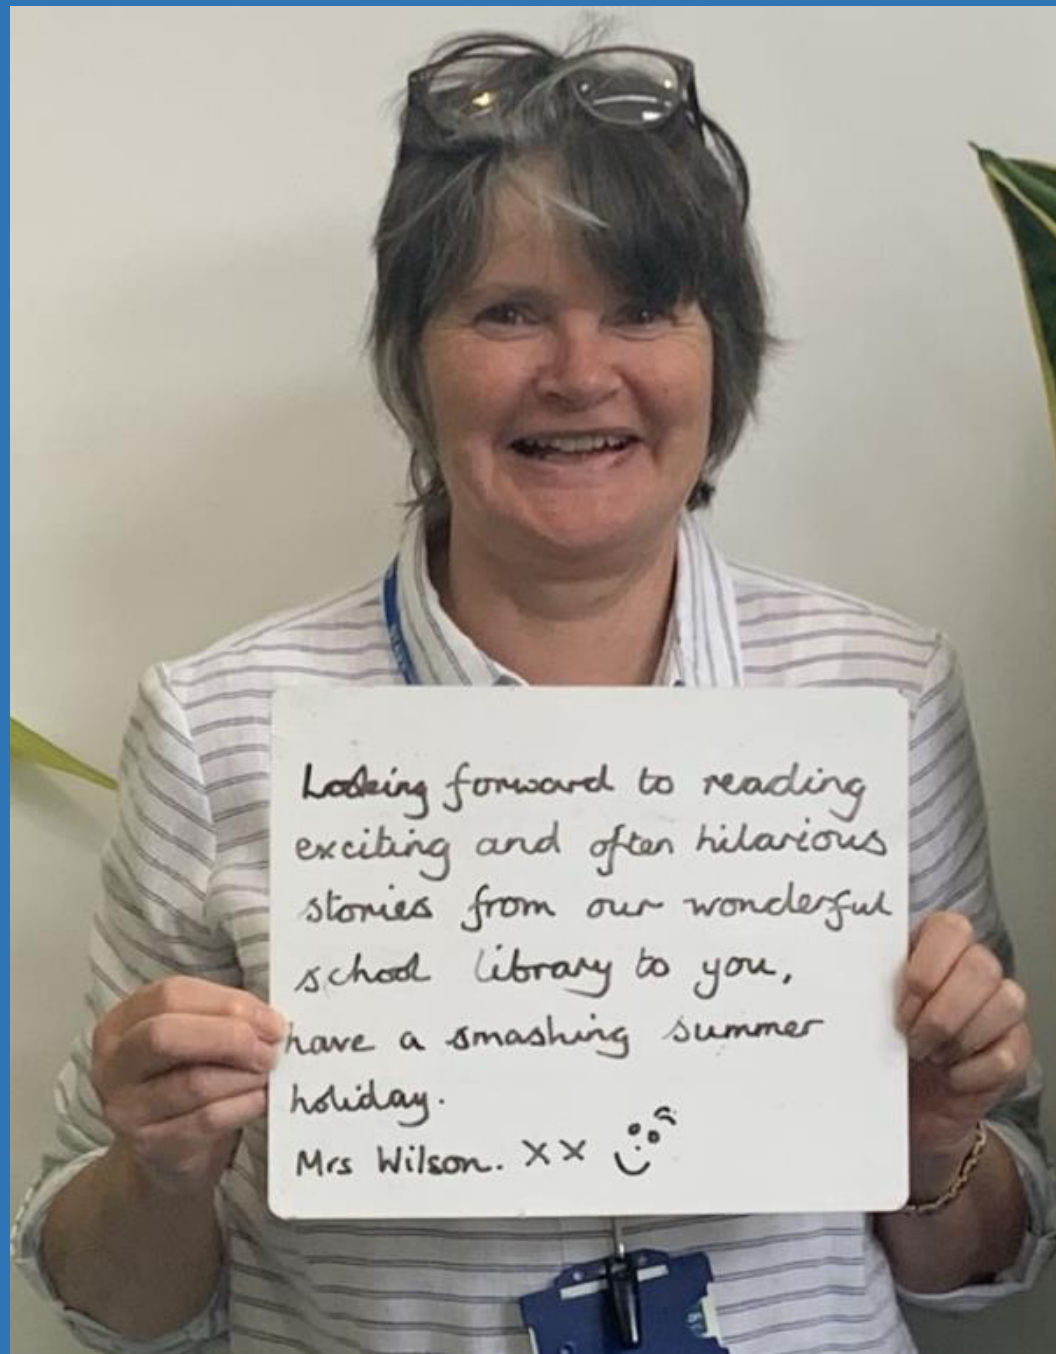 Looking forward to reading
exciting and often hilarious
stories from our wonderful
school library to you,
have a smashing summer
holiday.
Mrs Wilson. xx